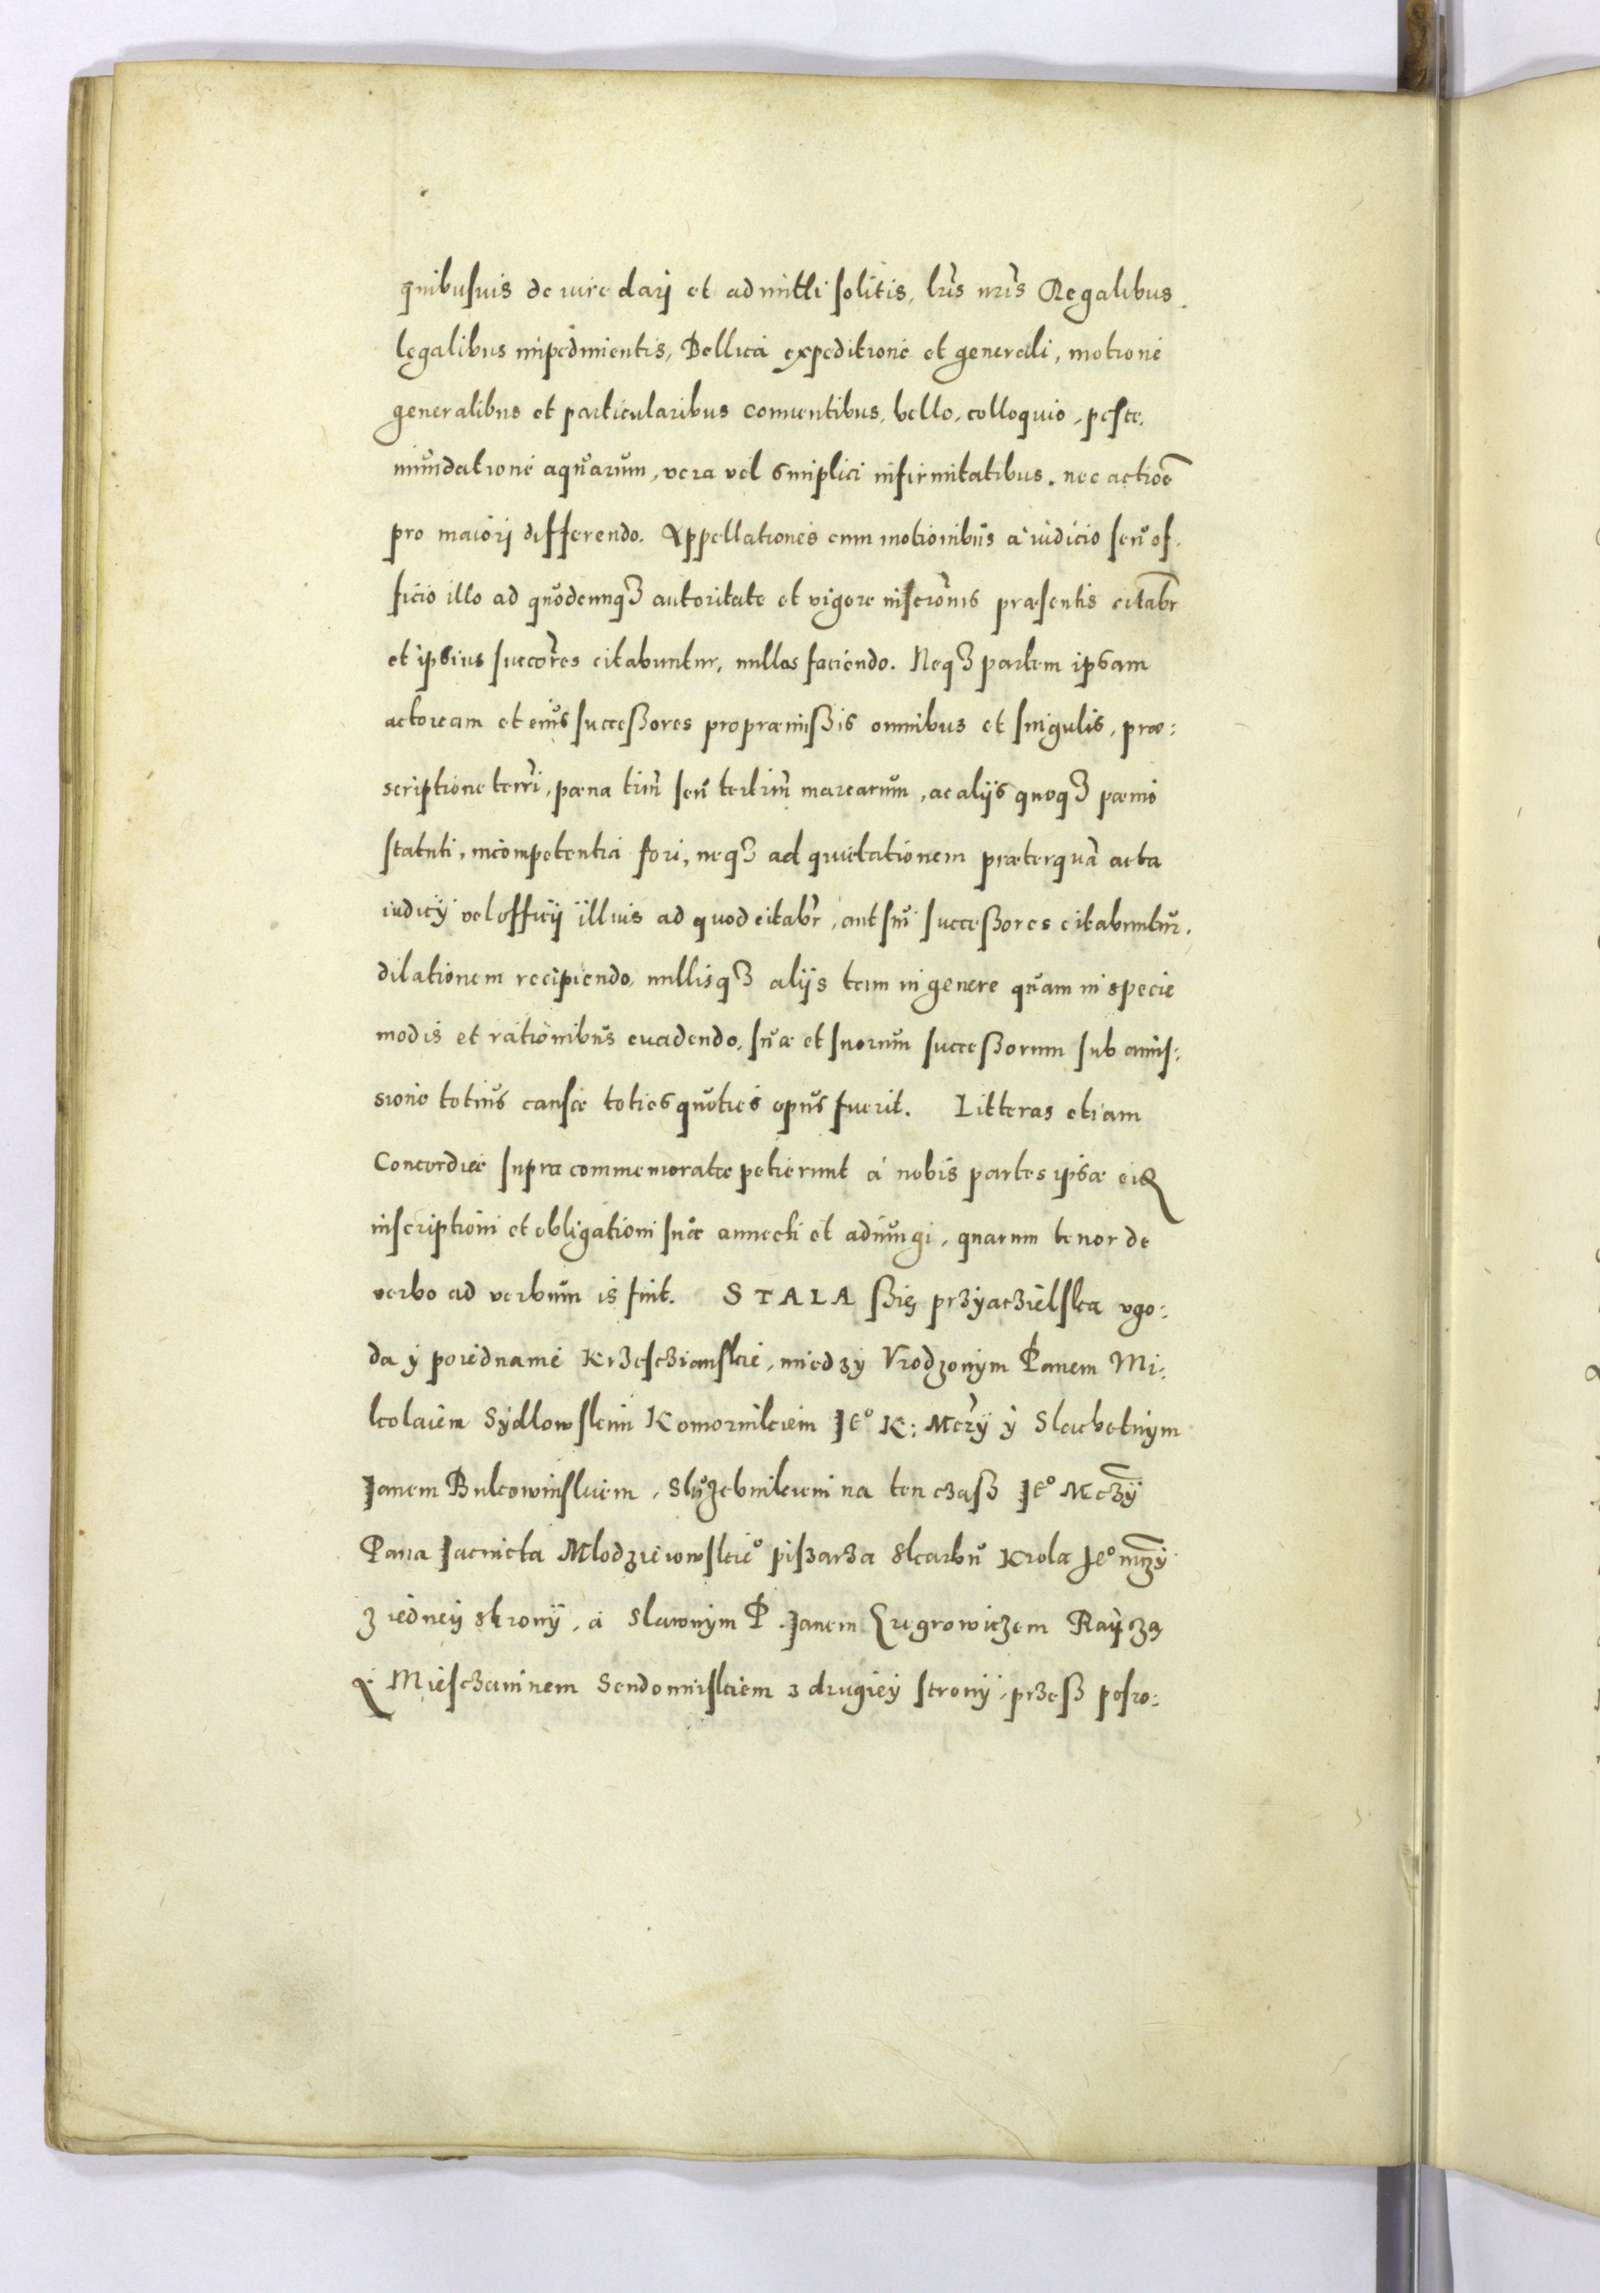 quibusuis de iure darj et admitti solitis, lrĩs nrĩs Regalibus.
legalibus impedimentis, Bellica expeditione et generali, motione
generalibus et particularibus conuentibus, bello, colloquio, peste,
inundatione aquarum, vera vel simplici infirmitatibus. nec actioẽ
pro maiorj differendo. Appellationes cum motionibus à iudicio seu of-
ficio illo ad quodcunqꝫ autoritate et vigore inscrõnis præsentis citabr̃
et ipsius succõres citabuntur, nullas faciendo. Neqꝫ partem ipsam
actoream et eius successores pro præmissis omnibus et singulis, præ:
scriptione terr̃i, pæna trium̃ seu tertium̃ marcarum, ac alijs quoqꝫ pænis
statuti, incompetentia fori, neqꝫ ad quietationem præterquã acta
iudicij vel officij illius ad quod citabr̃, aut sui successores citabuntur.
dilationem recipiendo, nullisqꝫ alijs tam in genere quam in specie
modis et rationibus euadendo, suæ et suorum successorum sub amis:
sione totius causæ toties quoties opus fuerit. Litteras etiam
Concordiæ supra commemoratæ petierunt à nobis partes ipsæ eiꝗ
inscriptioni et obligationi suæ annecti et adiungi, quarum tenor de
verbo ad verbum is fuit. STALA ssię przyaczielska vgo:
da y poiednanie Krzesczianskie, miedzy Vrodzonym Panem Mi:
kolaiem Sydlowskim Komornikiem Jeº K: Mczy y Slachetnym
Janem Bukowinskiem, Służebnikiem na ten czass Jeº Mczÿ
Pana Jacincta Mlodzieiowskieº pissarza skarbu Krola Jeº mczÿ
z iedney stronÿ, a Slawnym P Janem Gregrowiczem Raÿczą
y Miesczaninem Sendomirskiem z drugiey stronÿ, przess posro: